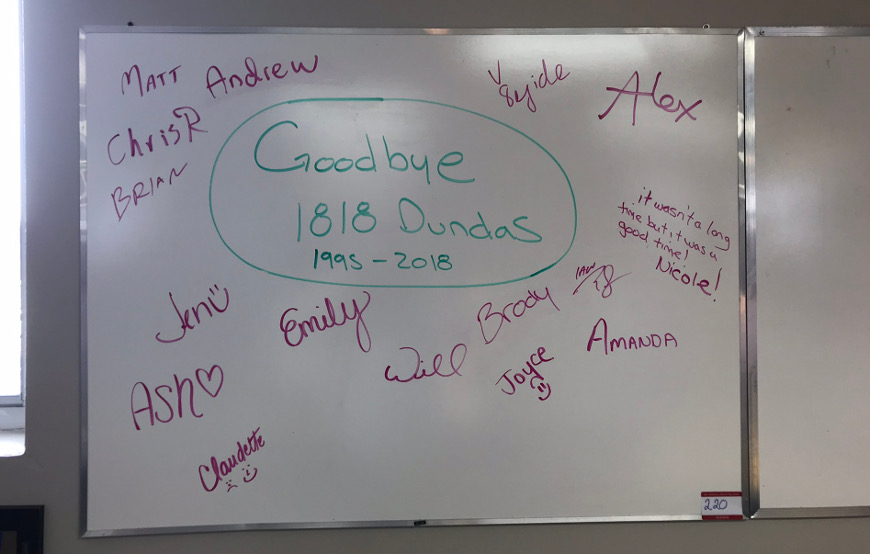 MATT
Andrew
Alex
ChrisR
BRIAN
Goodbye
1818 Dundas
1995-2018
it wasn't a long
time but it was a
good time!
Nicole!
Jen
Emily
Brody
IAN
AMANDA
Will
Joyce
ASH
Claudette
220